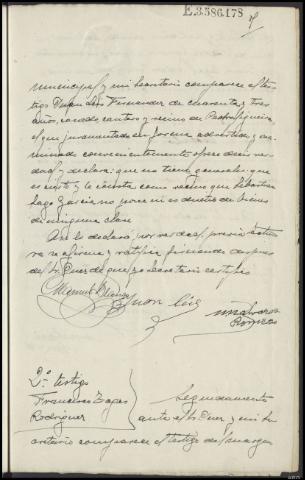 E.3.586.178
municipal y mi Secretario comparece el tes-
tigo Fernandez de cuarenta y tres
años, casado, cantero y vecino de
el que juramentado en forma advertido y exa-
minado convenientemente ofrece decir ver-
dad y declara: que no tiene generales: que
es cierto y le consta como vecino que Sebastian
Lago Garcia no posee ni es dueño de bienes
de ninguna clase
Asi lo declara, por verdad, previa lectura
se afirma y ratifica firmando despues
del Sr. Juez de que yo Secretario certifico
Juan
2º testigo
Francisco Bagos
Rodriguez
Seguidamente
ante el Sr. Juez y mi Se-
cretario comparece el testigo del margen